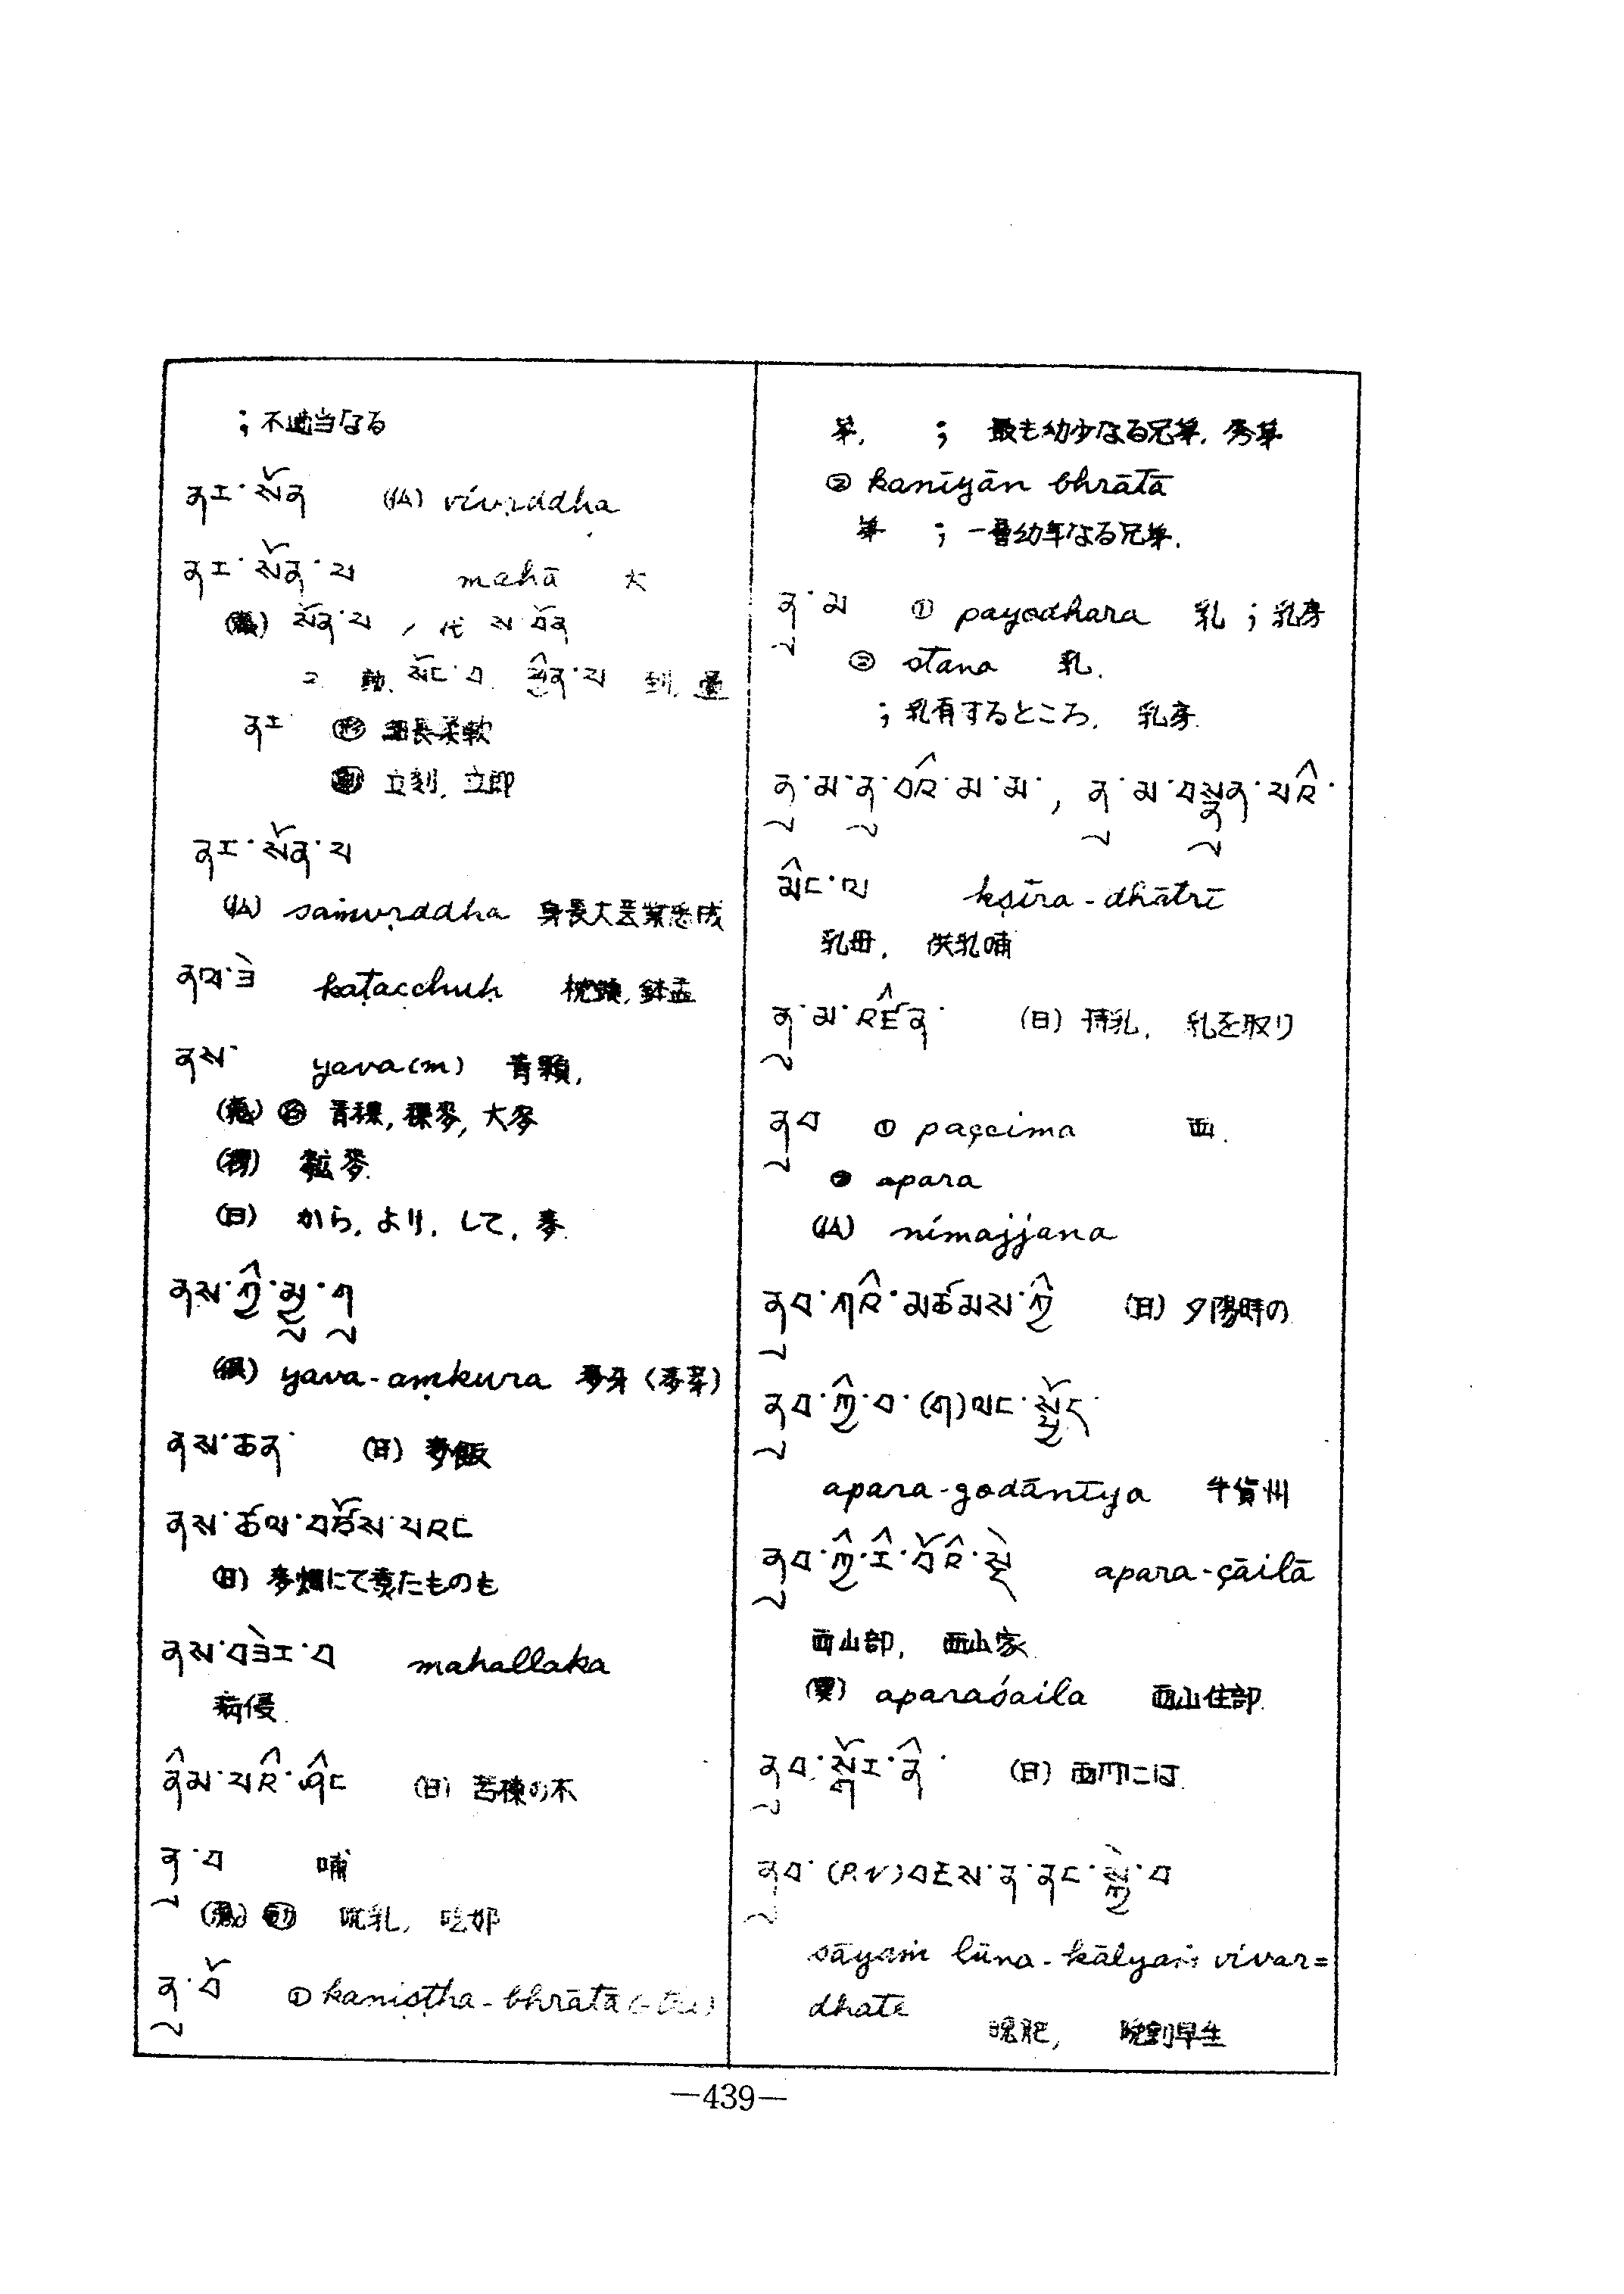 ; 不適当なる
ནར་སོན (仏) vivṛddha
ནར་སོན་པ mahā 大
སོན་པ / 代 ས་བོན
2. 動. སོང་བ. ཕྱིན་པ 到, 量
ནར 形 細長柔軟
副 立刻, 立即
ནར་སོན་པ
(仏) saṁvṛddha 身長大芸業悉成
ནལ་ཟེ kaṭacchuḥ 鉢盂
ནས་ yava(m) 青顆,
青稞, 稞麥, 大麥
麥.
(日) から, より, して, 麦.
ནས་ཀྱི་མྱུ་གུ
yava-aṃkura 麥牙 (麥芽)
ནས་ཆན་ (日) 麥飯
ནས་ཚལ་བཙོས་པའང
(日) 麦畑にて煮たものも
ནས་བཟེར་བ mahallaka
病優.
ནིམ་པའི་ཤིང (日) 苦棟の木
ནུ་བ 哺
動 吮乳, 吃奶
ནུ་བོ ① kaniṣṭha-bhrātā
弟, ; 最も幼少なる兄弟, 秀弟
② kanīyān bhrātā
弟 ; 一番幼年なる兄弟.
ནུ་མ ① payodhara 乳 ; 乳房
② stana 乳.
; 乳有するところ, 乳房.
ནུ་མ་ནུ་བའི་མ་མ་, ནུ་མ་བསྣུན་པའི་
མིང་ལ kṣīra-dhātrī
乳母, 供乳哺
ནུ་མ་འཛིན་ (日) 持乳, 乳を取り
ནུབ ① paçcima 西.
② apara
(仏) nimajjana
ནུབ་ཀའི་མཚམས་ཀྱི (日) 夕陽時の
ནུབ་ཀྱི་བ་(ག)ལང་སྤྱོད་
apara-godānīya 牛貨州
ནུབ་ཀྱི་རི་བོའི་སྡེ apara-çāilā
西山部, 西山家
aparaśaila 西山住部.
ནུབ་སྒོར་ནི་ (日) 西門には.
ནུབ་(P.N)བརྔས་ན་ནང་སྐྱེ་བ
sāyaṁ lūna-kālyaṁ vivar=
dhate
晩肥, 晩剴早生
—439—